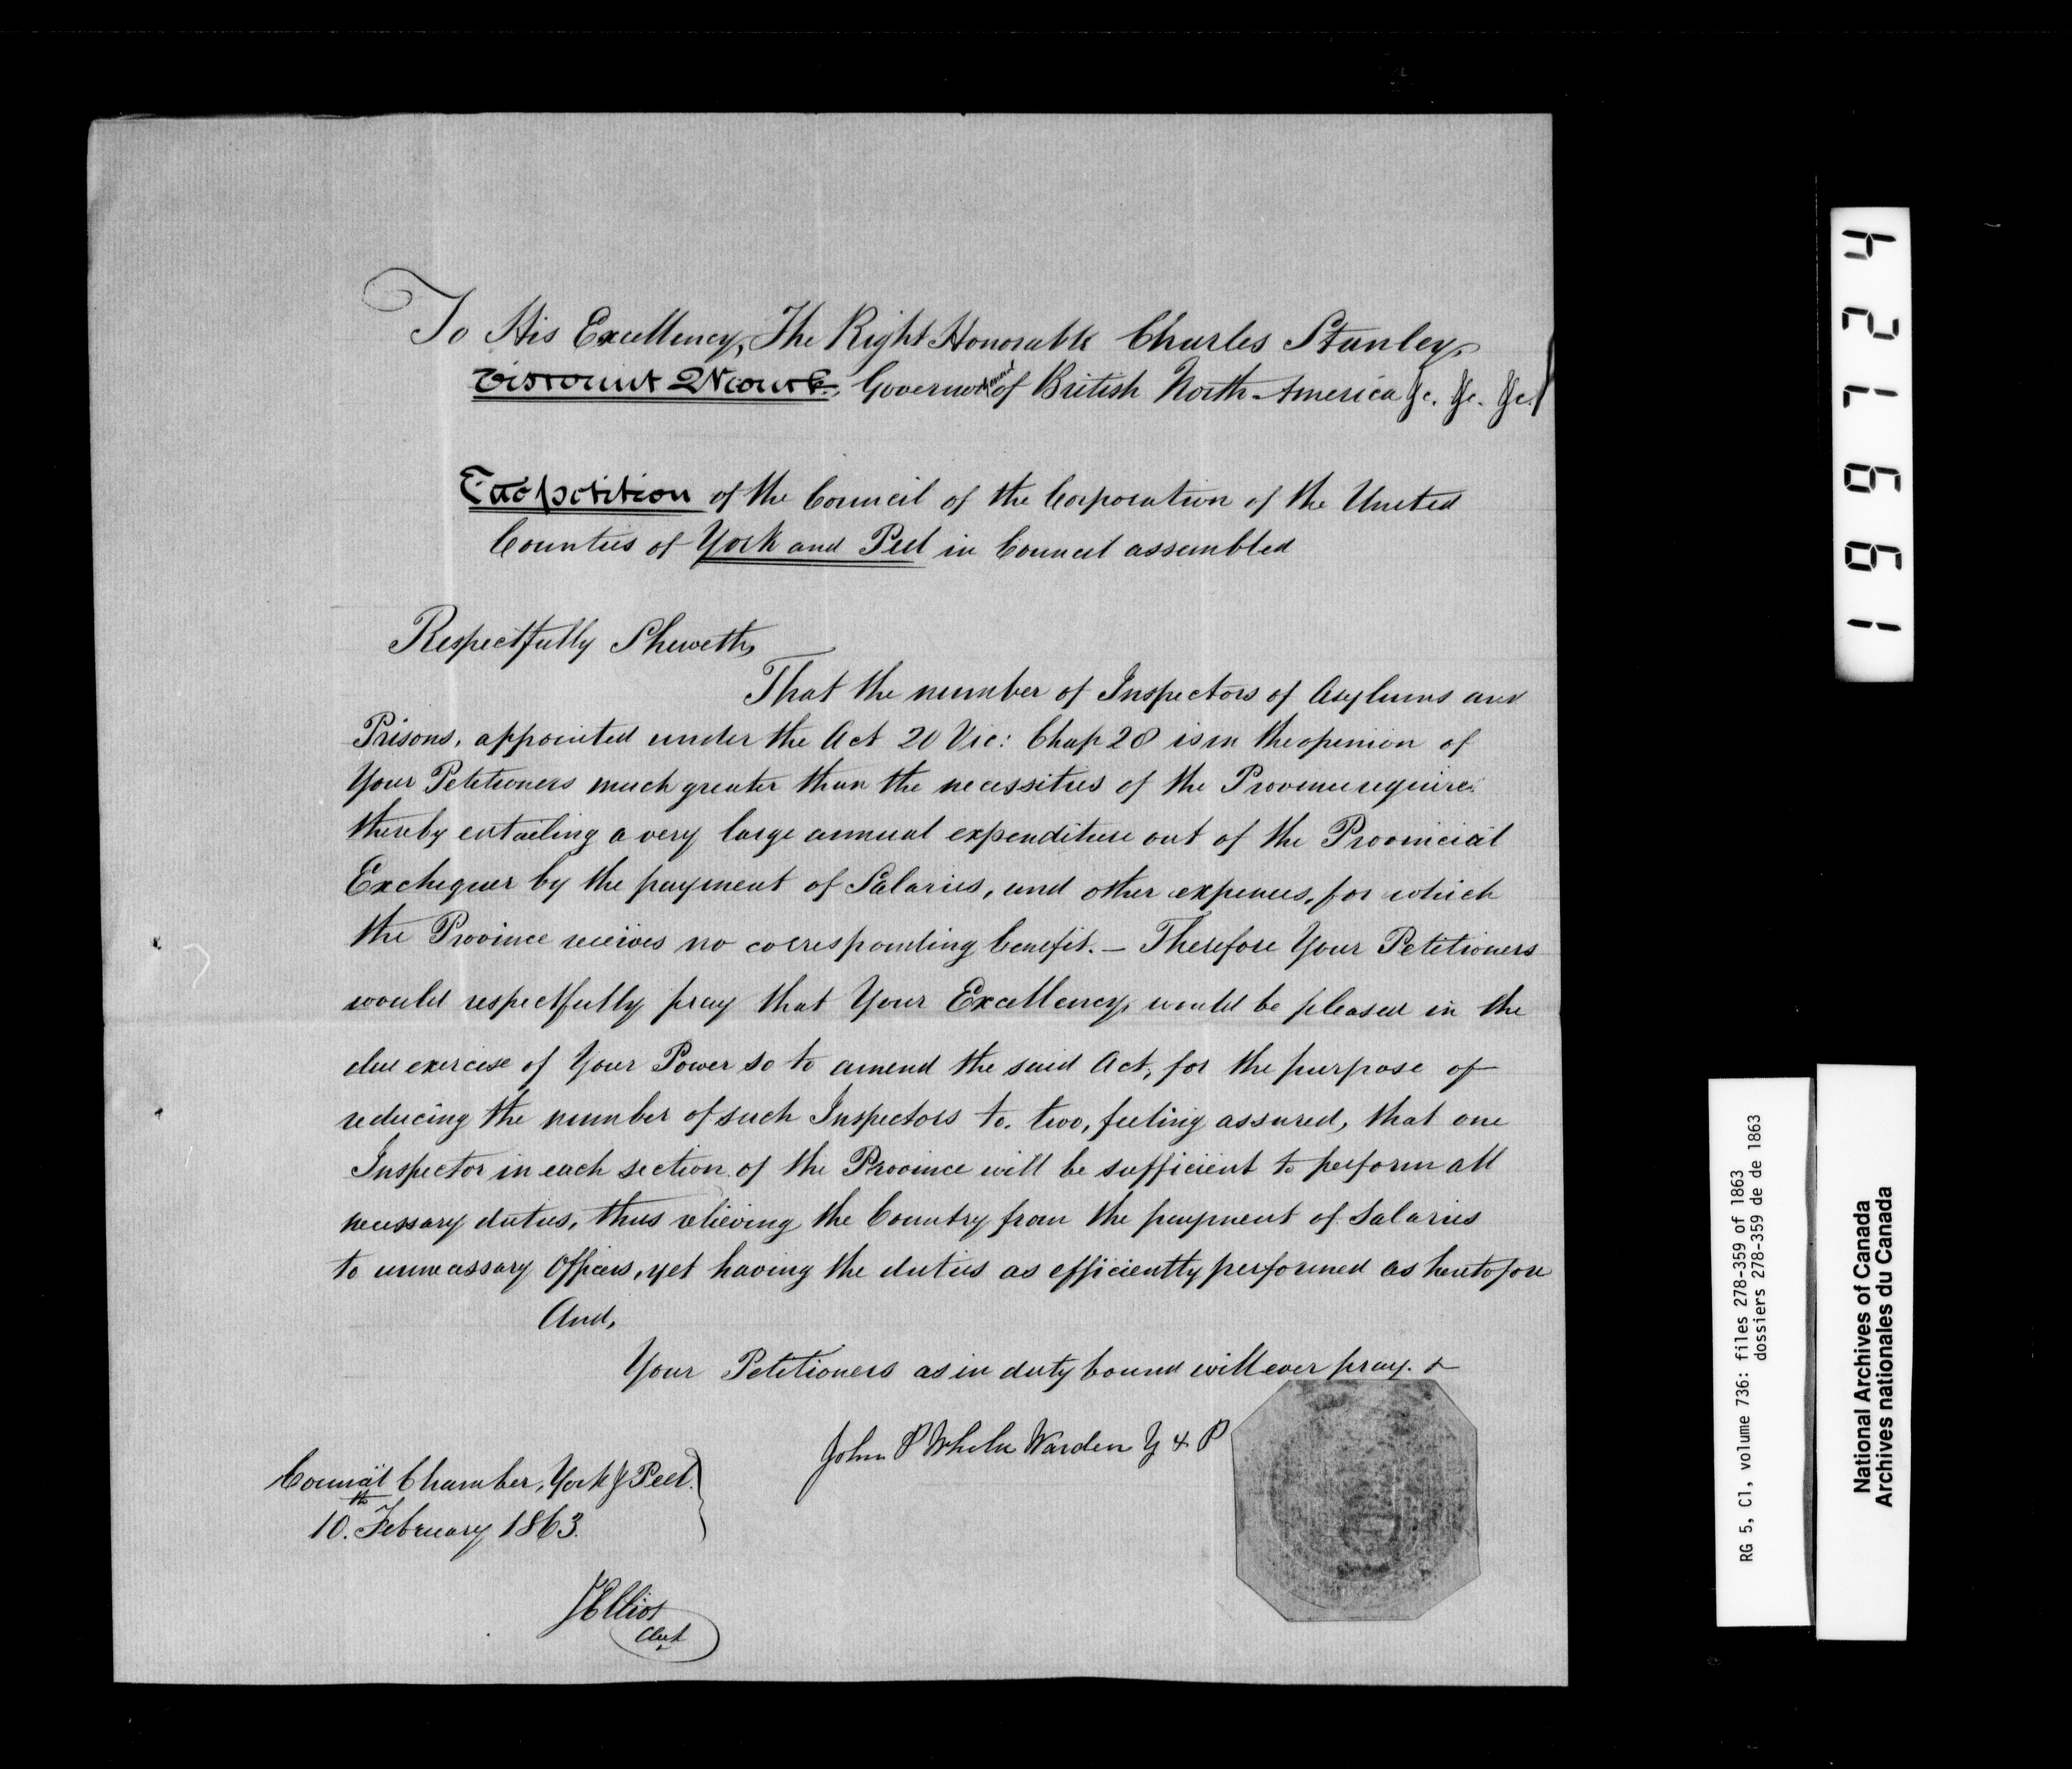 To His Excellency, The Right Honorable Charles Stanley,
Viscount Monck, Governor General of British North America &c. &c. &c.
The petition of the Council of the Corporation of the United
Counties of York and Peel in Council assembled
Respectfully Sheweth,
That the number of Inspectors of Asylums and
Prisons, appointed under the Act 20 Vic: Chap 28 is in the opinion of
Your Petitioners much greater than the necessities of the Province require.
thereby entailing a very large annual expenditure out of the Provincial
Exchequer by the payment of Salaries, and other expenses, for which
the Province receives no corresponding benefit. — Therefore Your Petitioners
would respectfully pray that Your Excellency, would be pleased in the
due exercise of Your Power so to amend the said Act, for the purpose of
reducing the number of such Inspectors to. two, feeling assured, that one
Inspector in each section of the Province will be sufficient to perform all
necessary duties, thus relieving the Country from the payment of Salaries
to unnecessary Officers, yet having the duties as efficiently performed as heretofore
And,
Your Petitioners as in duty bound will ever pray. &
John P Wheler Warden Y & P
Council Chamber, York & Peel.
10th. February 1863.
J Elliot
Clerk
199124
RG 5, C1, volume 736: files 278-359 of 1863
dossiers 278-359 de de 1863
National Archives of Canada
Archives nationales du Canada